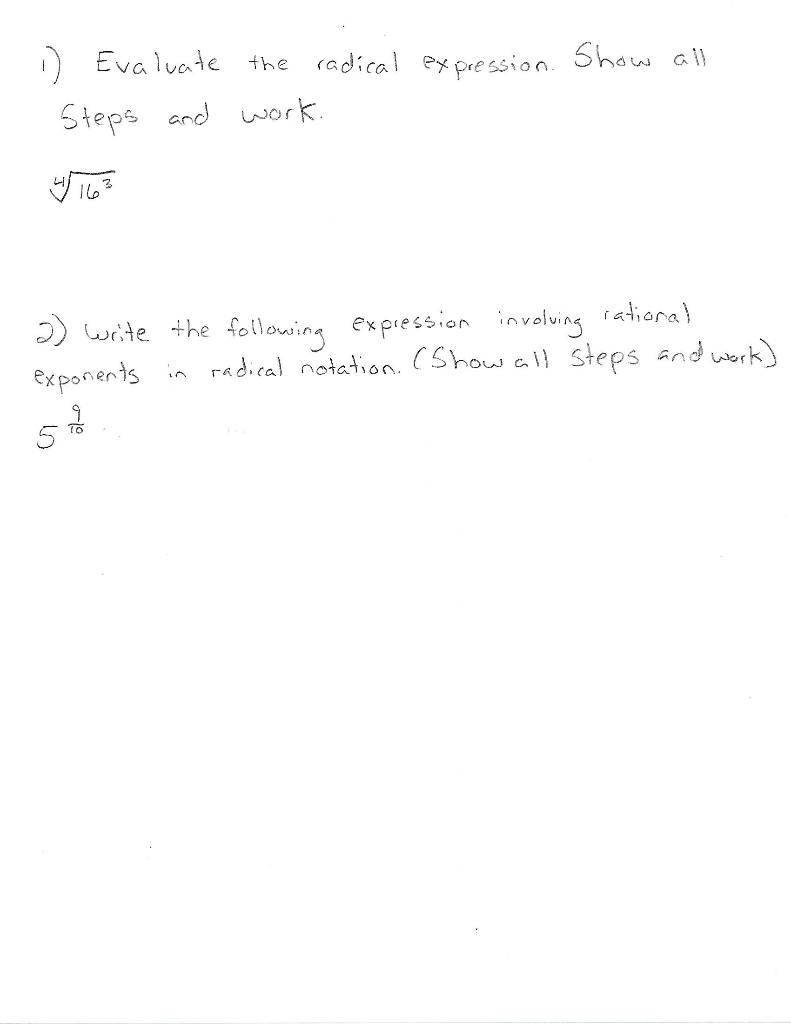 1) Evaluate the radical expression. Show all
Steps and work.
∜16³
2) Write the following expression involving rational
exponents in radical notation. (Show all Steps and work)
5^(9/10)